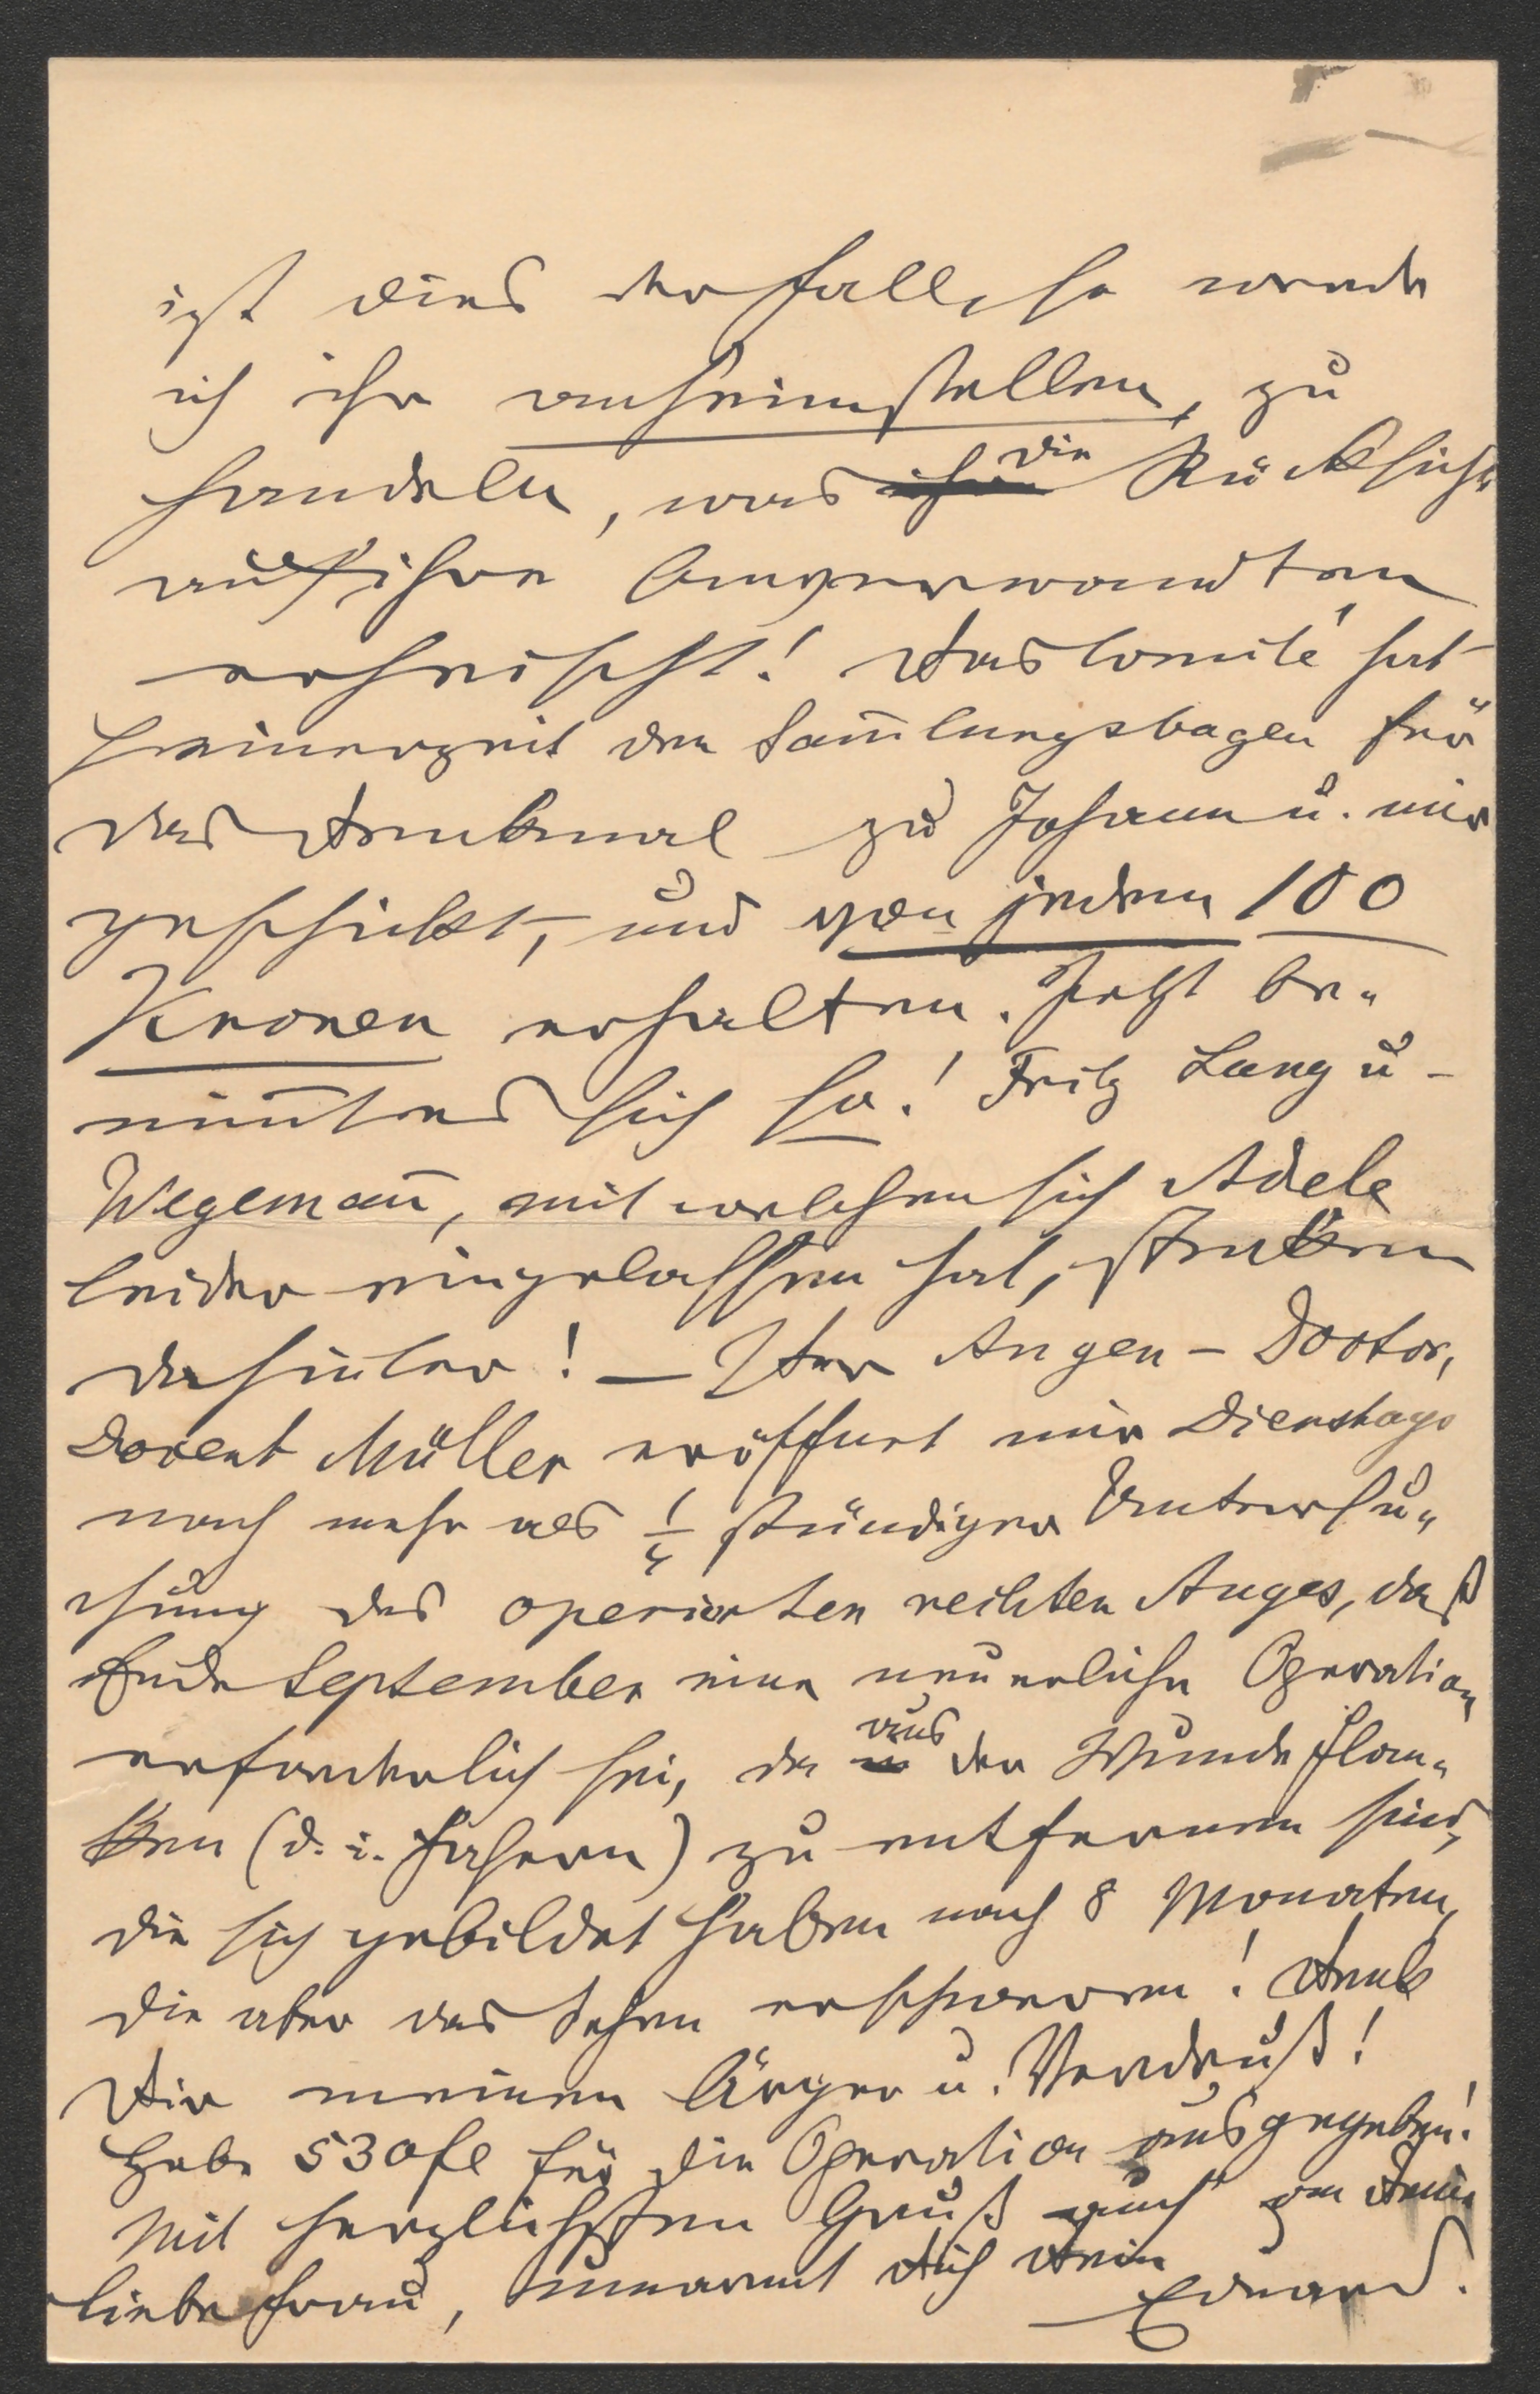 ist dies der Fall, so werde
ich ihr anheimstellen, zu
handeln, was die Rücksicht
auf ihre Anverwandten
erheischt! Das Comité hat
seinerzeit den Sam̄lungsbogen für
das Denkmal zu Johann u. mir
geschickt, und von jedem 100
Kronen erhalten. Jetzt be-
nim̄t es sich so! Fritz Lang u-
Wegeman̄, mit welchen sich Adele
leider eingelassen hat, stecken
dahinter! — Der Augen-Doctor,
Docent Müller eröffnet mir Dienstags
nach mehr als ¼ stündiger Untersu-
chung des operierten rechten Auges, daß
Ende September eine neuerliche Operation
erforderlich sei, da aus der Wunde Flan-
ken (d. i. Fasern) zu entfernen sind,
die sich gebildet haben nach 8 Monaten,
die aber das Sehen erschweren! Denk
Dir meinen Ärger u. Verdruß!
Habe 530 fl für die Operation ausgegeben!
Mit herzlichsten Gruß auch an Deine
liebe Frau, umarmt Dich Dein
Eduard.